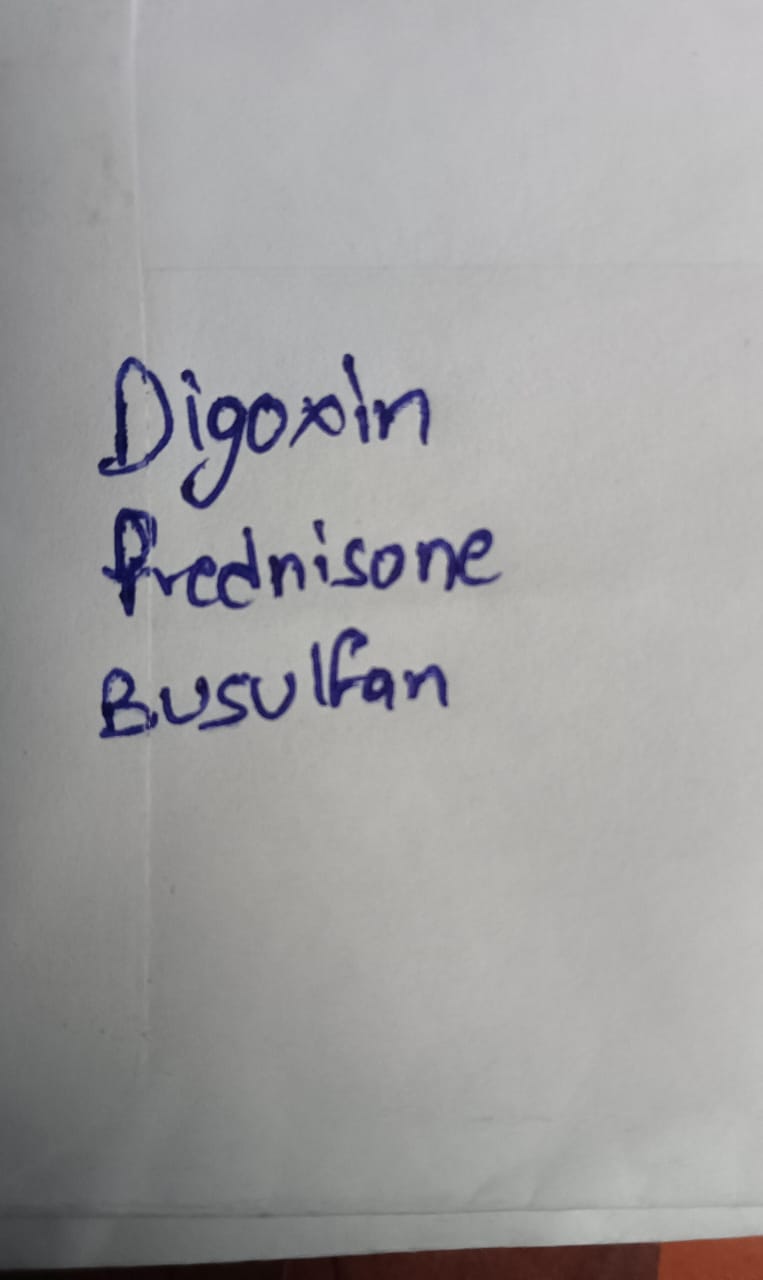 Digoxin
Prednisone
Busulfan